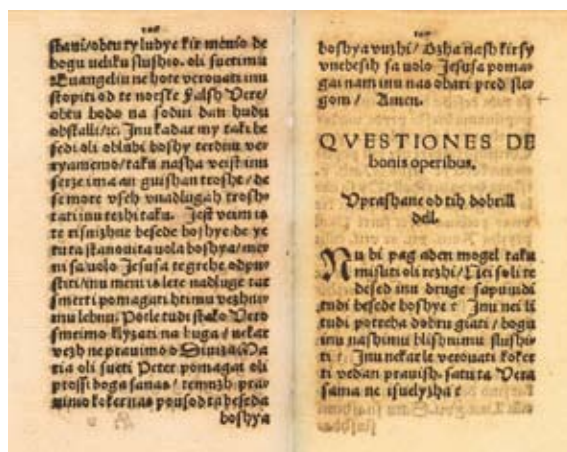 ſtani/obtu ty ludye kir menio de
bogu veliku ſluſhio. oli ſuetimu
Euangeliu ne hote verouati inu
ſtopiti od te norſke Falſh Vere/
obtu bodo na ſodni dan hudu
obſtalli/ꝛc. Inu kadar my taki be
ſedi oli oblubi boshy terdnu ver
ryamemo/taku naſha veiſt inu
ſerze ima an guiſhan troſht/de
ſe more vſeh vnadlugah troſh-
tati inu rezhi taku. Jeſt veim is
te riſnizhne beſede boshye de ye
tu ta ſtanouita uola boshya/me-
ni ſa uolo Jeſuſa te grehe odpu-
ſtiti/inu meni is lete nadluge tar
ſmerti pomagati
lebnu. Potle tudi ſtako Vero
ſmeimo klyzati na buga/nekar
vezh ne prauimo o Diuiza Ma
ria oli ſueti Peter pomagai oli
proſſi boga ſa nas/temuzh prav
uimo koker nas pouſod ta beſeda
boshya
boshya vuzhi/Ozha naſh kir ſy
vnebeſih ſa uolo Jeſuſa poma-
gai nam inu nas obari pred ſle-
gom/Amen.
QVESTIONES DE
bonis operibus.
Vpraſhane od tih dobrill
dell.
Nu bi pag aden mogel taku
miſliti oli rezhi/Nei ſo li te
deſed inu druge ſapuuidi
tudi beſede boshye? Inu nei li
tudi potreba dobru giati/bogu
inu naſhimu bliſhnimu ſluſhi-
ti? Inu nekar le verouati koker
ti vedan prauiſh. ſatu ta Vera
ſama ne iſuelyzha?